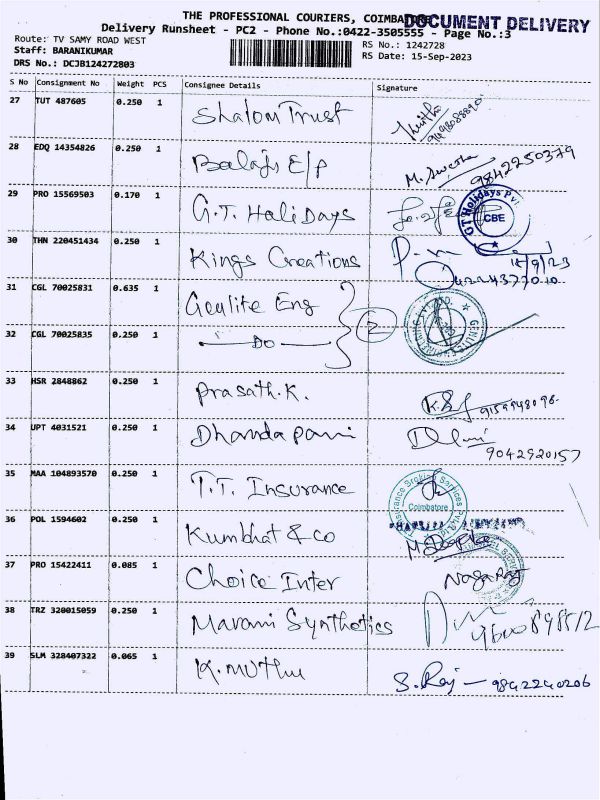 THE PROFESSIONAL COURIERS, COIMBATORE
DOCUMENT DELIVERY
Delivery Runsheet - PC2 - Phone No.:0422-3505555 - Page No.:3
Route: TV SAMY ROAD WEST
RS No.: 1242728
Staff: BARANIKUMAR
RS Date: 15-Sep-2023
DRS No.: DCJB124272803
S No Consignment No Weight PCS Consignee Details Signature
27 TUT 487605 0.250 1 Shalom Trust
28 EDQ 14354826 0.250 1 Balaji E/p M. Swetha 9842250379
29 PRO 15569503 0.170 1 G.T. Halidays GT Holidays Pvt CBE
30 THN 220451434 0.250 1 Kings Creations 15/9/23
04224377010
31 CGL 70025831 0.635 1 Geulite Eng 2
32 CGL 70025835 0.250 1 — DO —
33 HSR 2848862 0.250 1 Prasath.K.
34 UPT 4031521 0.250 1 Dhandapani
9042920157
35 MAA 104893570 0.250 1 T.T. Insurance Insurance Broking Services Pvt. Ltd Coimbatore
36 POL 1594602 0.250 1 Kumbhat & Co M. Deepika
37 PRO 15422411 0.085 1 Choice Inter Nagaraj
38 TRZ 320015059 0.250 1 Marani Synthetics
39 SLM 328407322 0.065 1 K. Muthu S. Raj — 9842240206